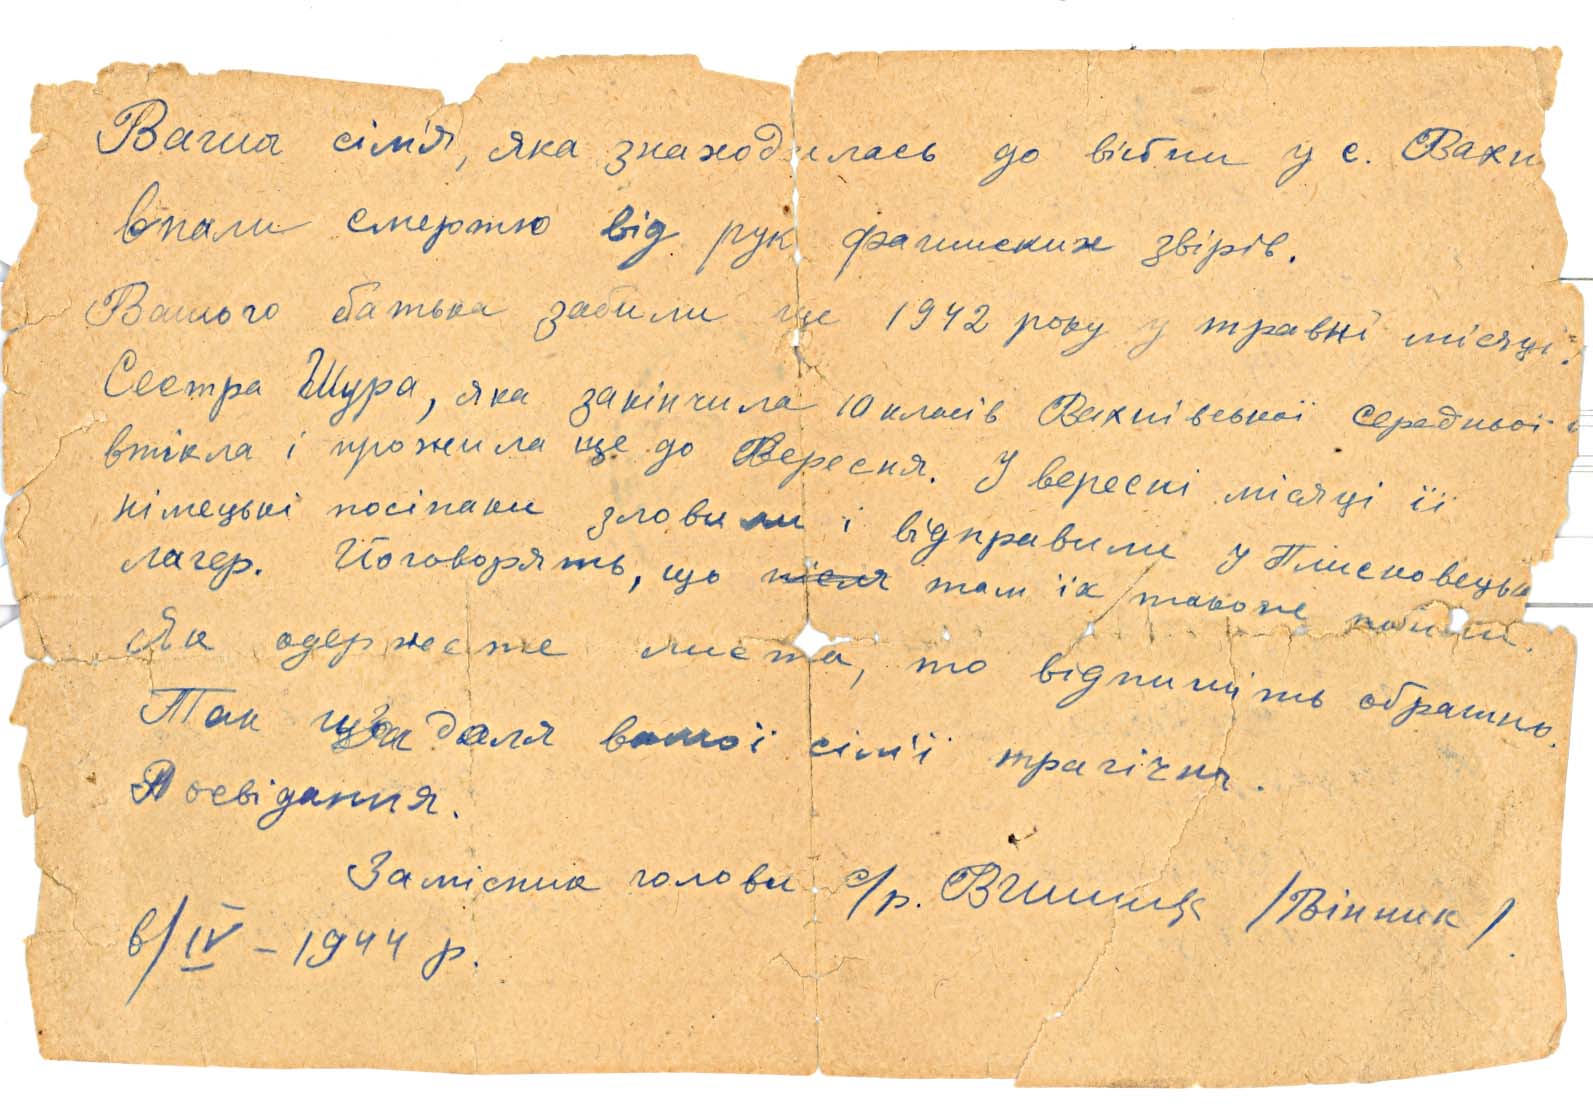 Ваша сім'я, яка знаходилась до війни у с. Вахн
впали смертю від рук фашиських звірів.
Вашого батька забили ще 1942 року у травні місяці.
Сестра Шура, яка закінчила 10 класів Вахнівської середньої
втікла і прожила ще до Вересня. У вересні місяці її
німецькі посіпаки зловили і відправили у Плисковецьк
лагер. Поговорять, що після там їх також побили.
Як одержете листа, то відпишіть обратно.
Так що доля вашої сім'ї трагічна.
Досвідання.
Замісник голови с/р. /Вінник/.
6/IV – 1944 р.